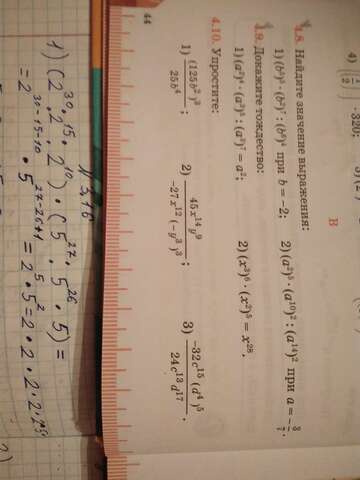 4)
В
4.8. Найдите значение выражения:
1) (b⁵)³ · (b²)⁷ : (b⁶)⁴ при b = −2; 2) (a²)⁵ · (a¹⁰)² : (a¹⁴)² при a = −3/7.
4.9. Докажите тождество:
1) (a²)⁴ · (a³)⁵ : (a³)⁷ = a²; 2) (x³)⁶ · (x²)⁵ = x²⁸.
4.10. Упростите:
1) (125b²)³ / 25b⁴; 2) 45x¹⁴y⁹ / −27x¹²(−y³)³; 3) −32c¹⁵(d⁴)⁵ / 24c¹³d¹⁷.
44
№ 3.16
1) (2³⁰ : 2¹⁵ : 2¹⁰) · (5²⁷ : 5²⁶ · 5) =
= 2³⁰⁻¹⁵⁻¹⁰ · 5²⁷⁻²⁶⁺¹ = 2⁵ · 5² = 2 · 2 · 2 · 2 · 25